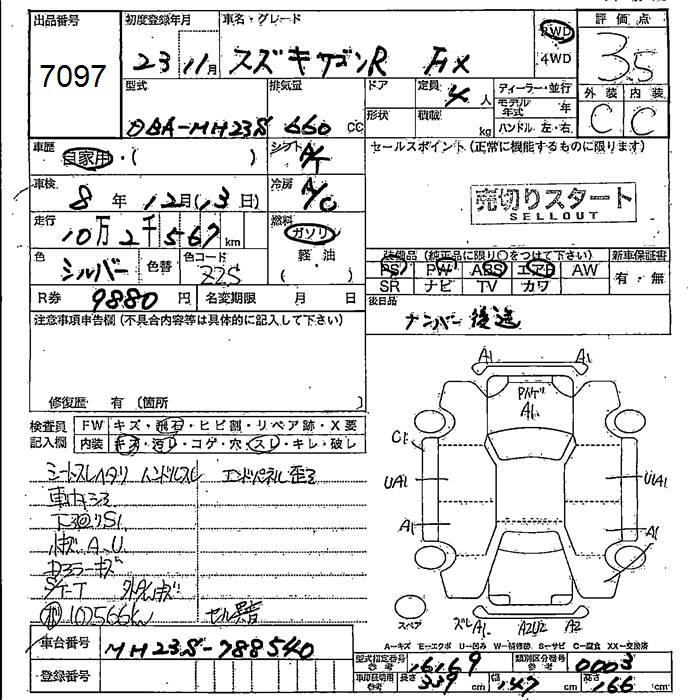 出品番号
7097
初度登録年月
23 11月
車名・グレード
スズキ ワゴンR FX
2WD
4WD
評価点
3.5
外装 内装
C C
型式
DBA-MH23S
排気量
660 cc
ドア
形状
定員
4人
積載
kg
ディーラー・並行
モデル年式 年
ハンドル 左・右
車歴
自家用・( )
シフト
A/T
セールスポイント (正常に機能するものに限ります)
売切りスタート
SELLOUT
車検
8年 12月(13日)
冷房
A/C
走行
10万2千567km
燃料
ガソリン
軽油
( )
色
シルバー
色替
色コード
Z2S
装備品 (純正品に限り○をつけて下さい)
PS PW ABS エアB AW
SR ナビ TV カワ
新車保証書
有・無
R券 9880円
名変期限 月 日
後日品
ナンバー後送
注意事項申告欄 (不具合内容等は具体的に記入して下さい)
修復歴 有 (箇所 )
検査員記入欄
FW キズ・飛石・ヒビ割・リペア跡・X要
内装 キズ・汚レ・コゲ・穴・スレ・キレ・破レ
シートスレヘタリ ハンドルスレ
エンドパネル歪ミ
車内キズ
下廻りS1
小キズ A、U
ドアミラーキズ
102566km
セル異音
A1 A1
A1
C1
UA1 U1A1
A1 A1
スペア
A1 A2U2 A2
A-キズ E-エクボ U-凹み W-補修跡 S-サビ C-腐食 XX-交換済
車台番号
MH23S-788540
登録番号
型式指定番号 参考 16169
類別区分番号 参考 0003
車印証明用 参考
長さ 339cm
幅 147cm
高さ 166cm